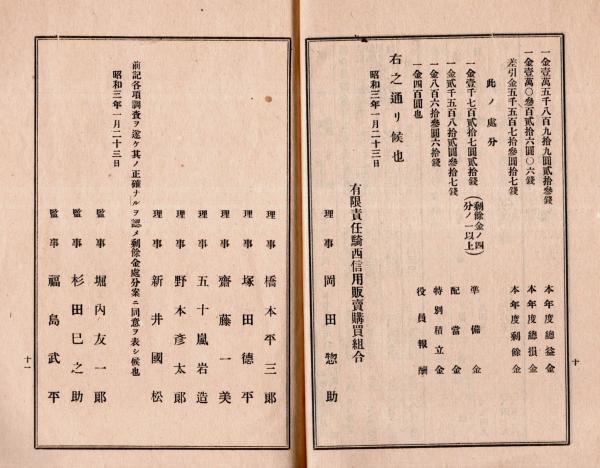 一金壹萬五千八百九拾九圓貳拾參錢 本年度總益金
一金壹萬〇參百貳拾六圓〇六錢 本年度總損金
差引金五千五百七拾參圓拾七錢 本年度剩餘金
此ノ處分
一金壹千七百貳拾七圓貳拾錢 (剩餘金ノ四分ノ一以上) 準備金
一金貳千五百八拾貳圓參拾七錢 配當金
一金八百六拾參圓六拾錢 特別積立金
一金四百圓也 役員報酬
右之通リ候也
昭和三年一月二十三日
有限責任騎西信用販賣購買組合
理事 岡田惣助
十
理事 橋本平三郞
理事 塚田德平
理事 齋藤一美
理事 五十嵐岩造
理事 野本彥太郞
理事 新井國松
前記各項調査ヲ遂ケ其ノ正確ナルヲ認メ剩餘金處分案ニ同意ヲ表シ候也
昭和三年一月二十三日
監事 堀內友一郞
監事 杉田巳之助
監事 福島武平
十一